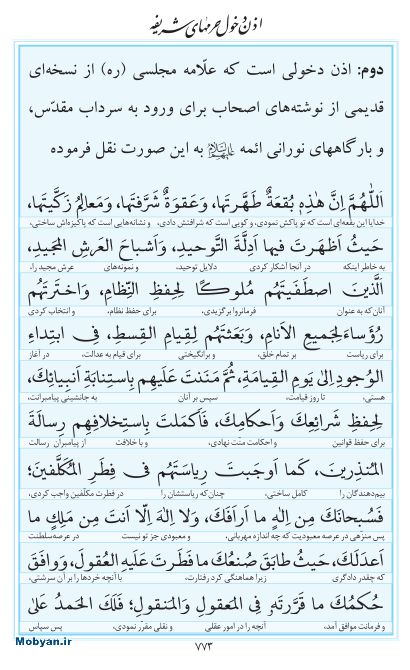 اذن دخول حرمهای شریفه
دوم: اذن دخولی است که علّامه مجلسی (ره) از نسخه‌ای
قدیمی از نوشته‌های اصحاب برای ورود به سرداب مقدّس،
و بارگاههای نورانی ائمه علیهم‌السلام به این صورت نقل فرموده
اَللّٰهُمَّ اِنَّ هٰذِهِ بُقعَةٌ طَهَّرتَها، وَعَقوَةٌ شَرَّفتَها، وَمَعالِمُ زَکَّیتَها،
خدایا این بقعه‌ای است که تو پاکش نمودی، و کویی است که شرافتش دادی، و نشانه‌هایی است که پاکیزه‌اش ساختی،
حَیثُ اَظهَرتَ فیها اَدِلَّةَ التَّوحیدِ، وَاَشباحَ العَرشِ المَجیدِ،
به خاطر اینکه در آنجا آشکار کردی دلایل توحید، و نمونه‌های عرش مجید را،
اَلَّذینَ اصطَفَیتَهُم مُلوکًا لِحِفظِ النِّظامِ، وَاختَرتَهُم
آنان که به عنوان فرمانروا برگزیدی، برای حفظ نظام، و انتخاب کردی
رُؤَساءَ لِجَمیعِ الاَنامِ، وَبَعَثتَهُم لِقِیامِ القِسطِ، فِی ابتِداءِ
برای ریاست بر تمام خلق، و برانگیختی برای قیام به عدالت، در آغاز
الوُجودِ اِلیٰ یَومِ القِیامَةِ، ثُمَّ مَنَنتَ عَلَیهِم بِاستِنابَةِ اَنبِیائِکَ،
هستی، تا روز قیامت، سپس بر آنان به جانشینی پیامبرانت،
لِحِفظِ شَرائِعِکَ وَاَحکامِکَ، فَاَکمَلتَ بِاستِخلافِهِم رِسالَةَ
برای حفظ قوانین و احکامت منّت نهادی، و با خلافت از پیامبران رسالت
المُنذِرینَ، کَما اَوجَبتَ رِیاسَتَهُم فی فِطَرِ المُکَلَّفینَ؛
بیم‌دهندگان را کامل ساختی، چنان‌که ریاستشان را در فطرت مکلّفین واجب کردی،
فَسُبحانَکَ مِن اِلٰهٍ ما اَرأَفَکَ، وَلا اِلٰهَ اِلّا اَنتَ مِن مَلِکٍ ما
پس منزهی در عرصه معبودیت که چه اندازه مهربانی، و معبودی جز تو نیست در عرصه سلطنت
اَعدَلَکَ، حَیثُ طابَقَ صُنعُکَ ما فَطَرتَ عَلَیهِ العُقولَ، وَوافَقَ
که چقدر دادگری زیرا هماهنگی کرد رفتارت، با آنچه خردها را بر آن سرشتی،
حُکمُکَ ما قَرَّرتَهُ فِی المَعقولِ وَالمَنقولِ؛ فَلَکَ الحَمدُ عَلیٰ
و فرمانت موافق آمد، آنچه را در امور عقلی و نقلی مقرّر نمودی، پس سپاس
۷۷۳
Mobyan.ir